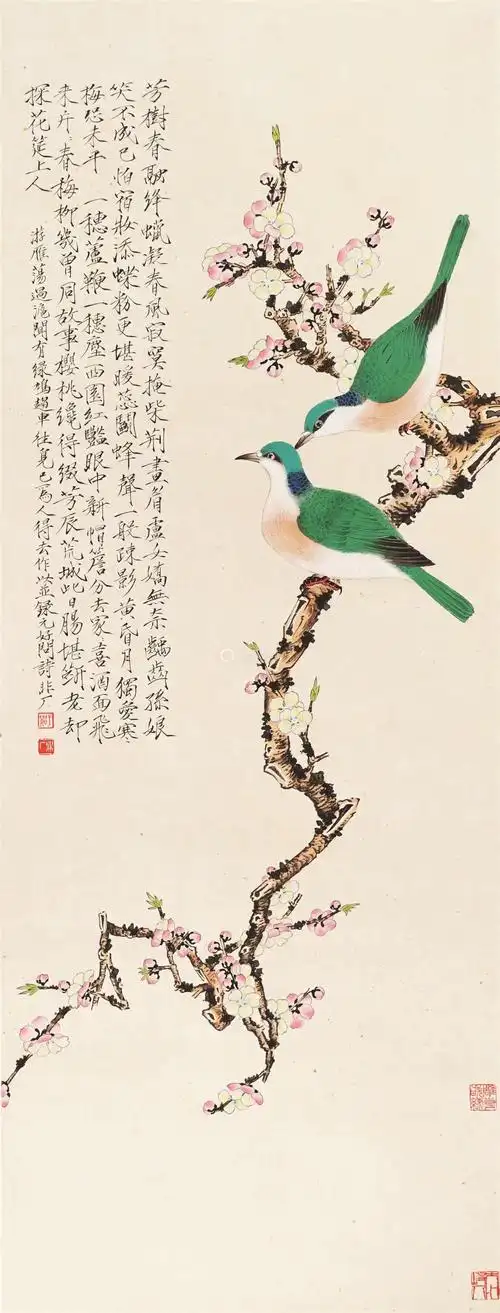 芳樹春融絳蠟凝春風寂寞掩柴荆畫眉盧女嬌無奈齲齒孫娘
笑不成已怕宿妝添蝶粉更堪暖蕊鬧蜂聲一般疎影黃昏月獨愛寒
梅恐未平 一穗蘆鞭一穗塵西園紅豔眼中新帽簷分去家〻喜酒面飛
来片〻春梅柳幾曾同故事櫻桃纔得綴芳辰荒城此日腸堪斷老却
探花筵上人
游雁蕩過滬聞有綠鳩趨車往覓已為人得去作此並錄元好問詩非厂